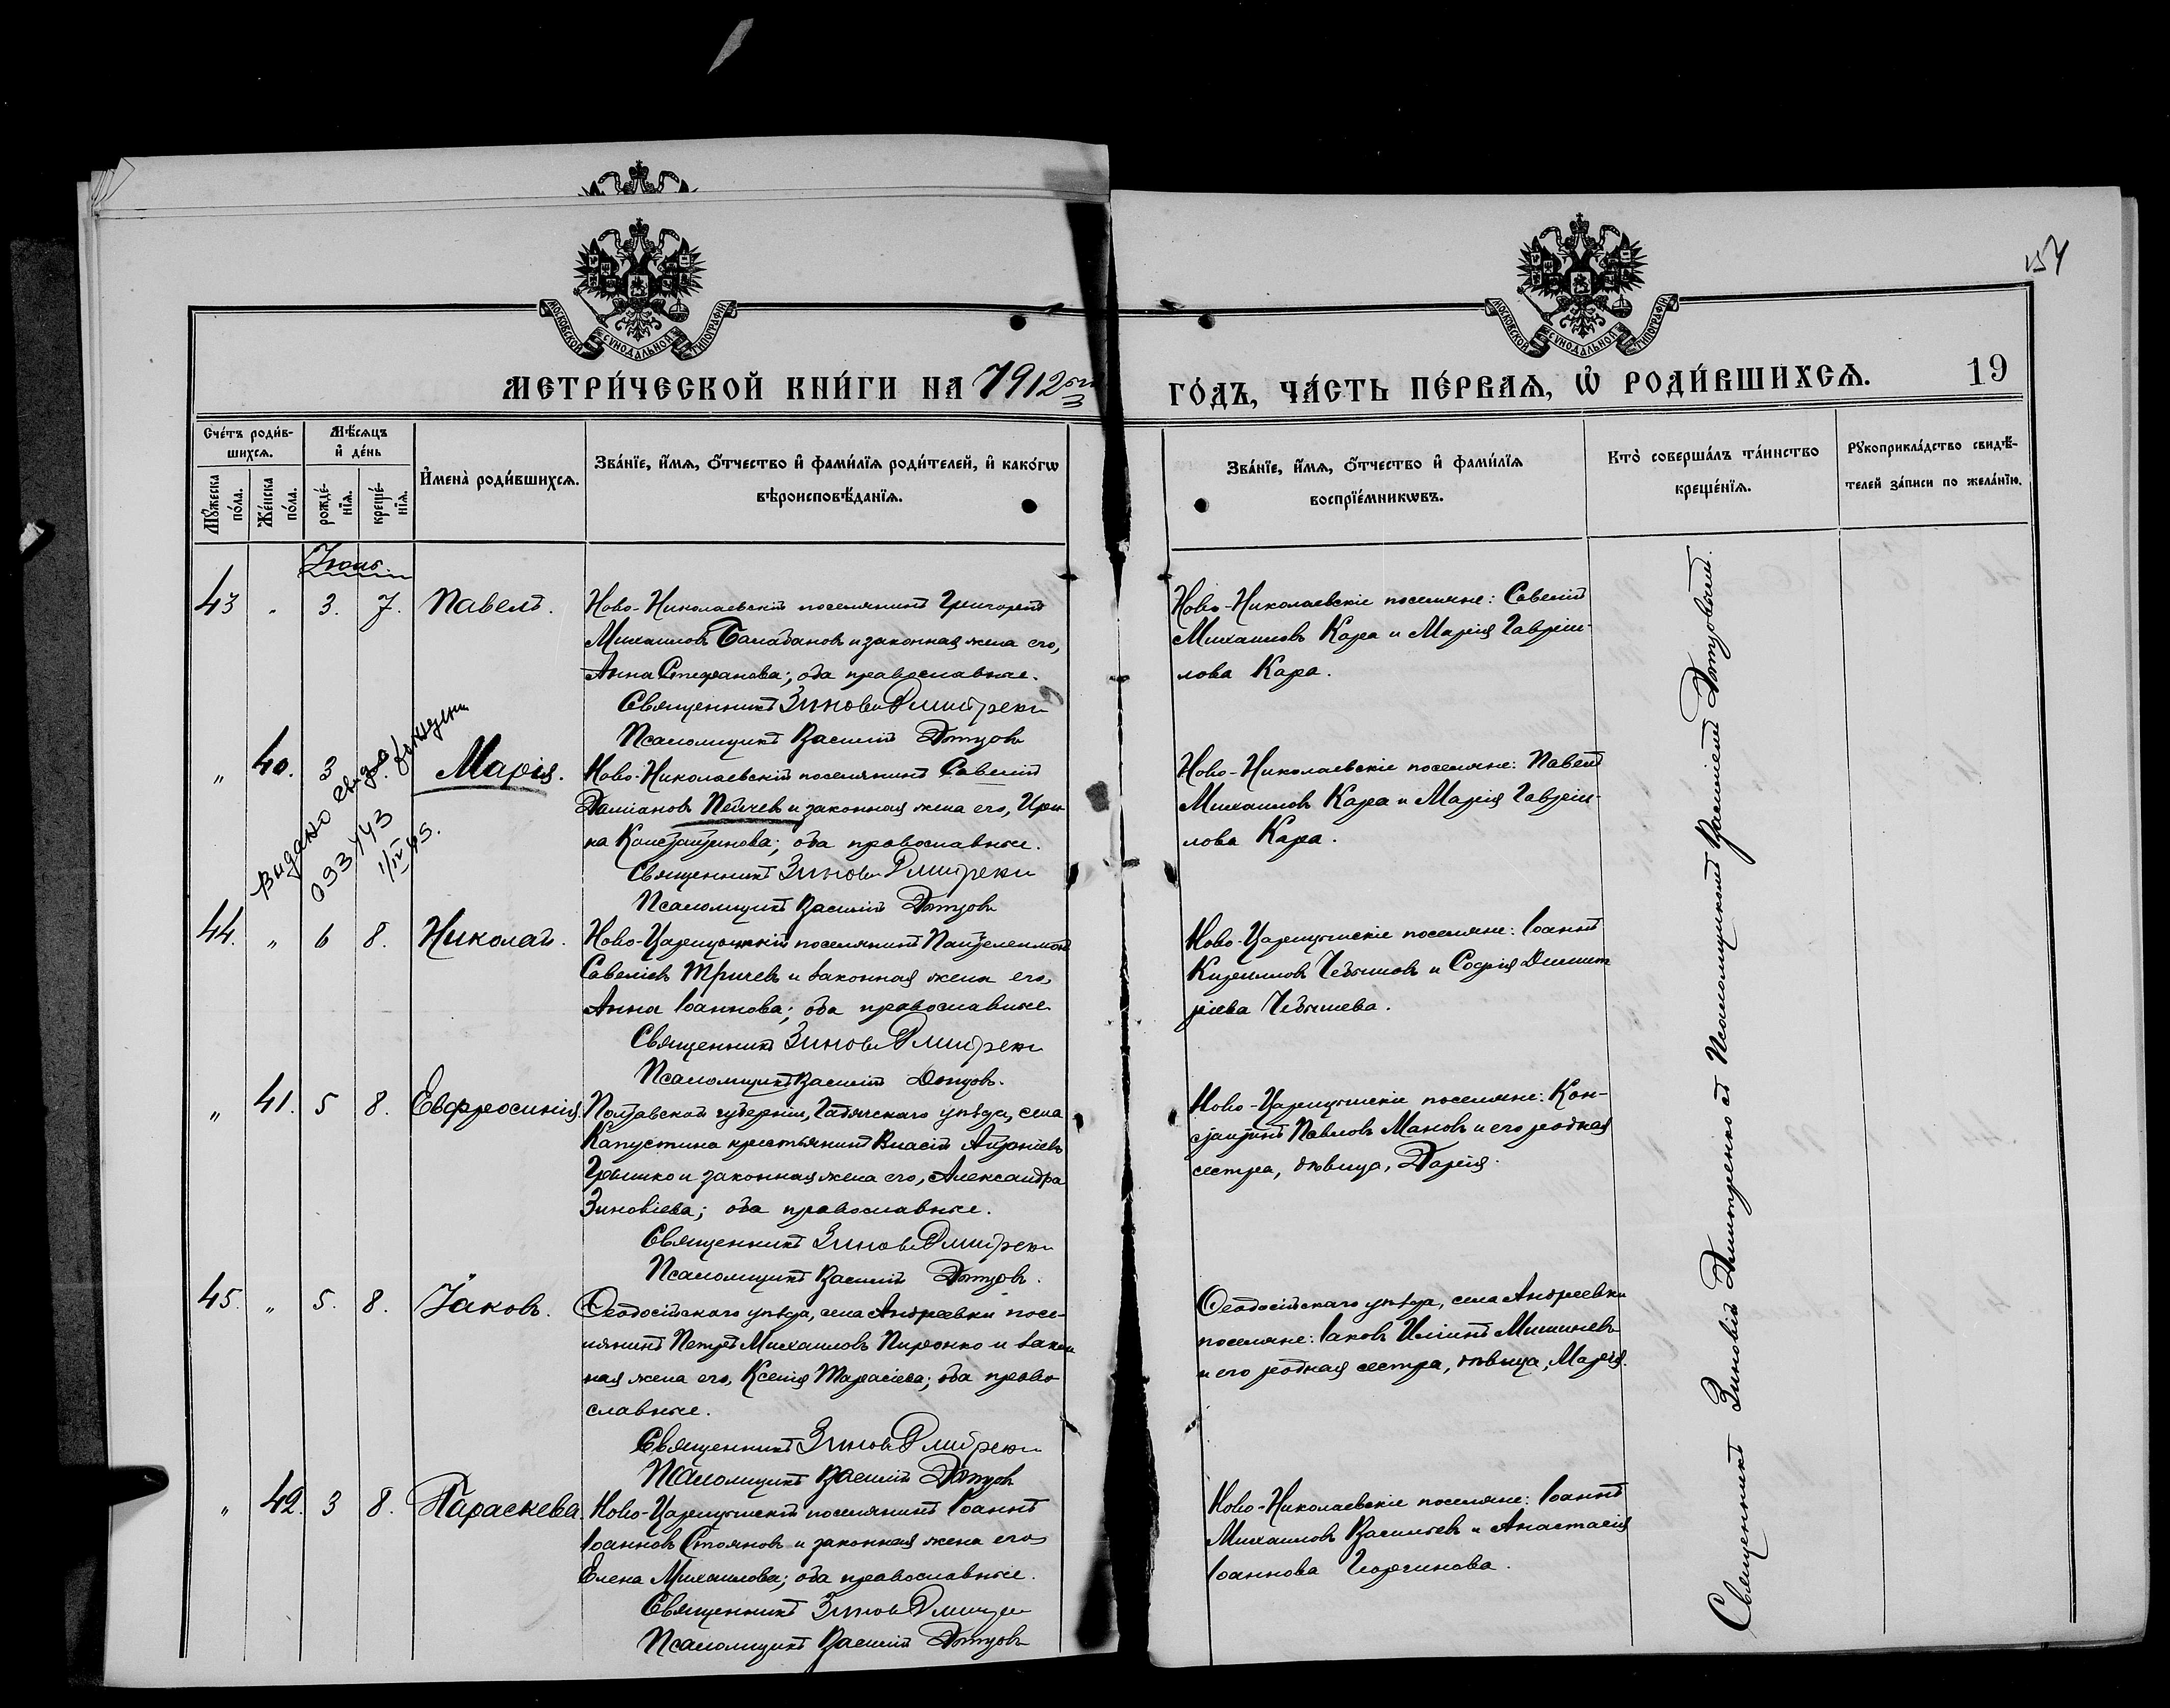 154
МОСКОВСКОЙ СУНОДАЛЬНОЙ ТИПОГРАФІИ
МОСКОВСКОЙ СУНОДАЛЬНОЙ ТИПОГРАФІИ
МЕТРИ́ЧЕСКОЙ КНИ́ГИ НА 1912ый
ГО́ДЪ, ЧА́СТЬ ПЕ́РВАѦ, Ѽ РОДИ́ВШИХСѦ.
19
Сче́тъ роди́в-
шихсѧ.
Мꙋжеска по́ла.
Же́нска по́ла.
Мѣ́сѧцъ
и҆ де́нь
рожде́-
нїѧ.
креще́-
нїѧ.
И҆мена̀ роди́вшихсѧ.
Зва́нїе, и҆́мѧ, ѻ҆́тчество и҆ фами́лїѧ роди́телей, и҆ како́гѡ
вѣроисповѣ́данїѧ.
Зва́нїе, и҆́мѧ, ѻ҆́тчество и҆ фами́лїѧ
воспрїе́мникѡвъ.
Кто̀ соверша́лъ та́инство
креще́нїѧ.
Рꙋкоприкла́дство свидѣ́-
телей за́писи по жела́нїю.
Іюль.
43 " 3. 7. Павелъ.
Ново-Николаевскій поселянинъ Григорій
Михаиловъ Балабановъ и законная жена его,
Анна Стефанова; оба православные.
Священникъ Зиновій Дмитренко
Псаломщикъ Василій Дотцовъ
Ново-Николаевскіе поселяне: Савелій
Михаиловъ Кара и Марія Гавріи-
лова Кара.
" 40. 3 Марія.
Видано свидо
093443
1/IV 45.
Ново-Николаевскій поселянинъ Савелій
Даміановъ Пейчев и законная жена его, Ири-
на Константинова; оба православные.
Священникъ Зиновій Дмитренко
Псаломщикъ Василій Дотцовъ
Ново-Николаевскіе поселяне: Павелъ
Михаиловъ Кара и Марія Гавріи-
лова Кара.
44. " 6 8. Николай.
Ново-Царицынскій поселянинъ Пантелеимонъ
Савеліевъ Тричев и законная жена его,
Анна Іоаннова; оба православные
Священникъ Зиновій Дмитренко
Псаломщикъ Василій Дотцовъ.
Ново-Царицынскіе поселяне: Іоаннъ
Кирилловъ Чебышовъ и Софія Димит
ріева Чебышева.
" 41. 5 8. Евфросинія.
Полтавской губерніи, Гадячскаго уѣзда, села
Капустина крестьянинъ Власій Антоніевъ
Гришко и законная жена его, Александра
Зиновіева; оба православные.
Священникъ Зиновій Дмитренко
Псаломщикъ Василій Дотцовъ.
Ново-Царицынскіе поселяне: Кон-
стантинъ Павловъ Мановъ и его родная
сестра, дѣвица, Дарія.
45. " 5. 8. Іаковъ.
Ѳеодосійскаго уѣзда, села Андреевки посе-
лянинъ Петръ Михаиловъ Пиронко и закон
ная жена его, Ксенія Тарасіева; оба право-
славные.
Священникъ Зиновій Дмитренко
Псаломщикъ Василій Дотцовъ
Ѳеодосійскаго уѣзда, села Андреевки
поселяне: Іаковъ Иліинъ Мишиневъ
и его родная сестра, дѣвица, Марія.
" 42. 3 8. Параскева.
Ново-Царицынскій поселянинъ Іоаннъ
Іоанновъ Стояновъ и законная жена его,
Елена Михаилова; оба православные.
Священникъ Зиновій Дмитренко
Псаломщикъ Василій Дотцовъ
Ново-Николаевскіе поселяне: Іоаннъ
Михаиловъ Васильевъ и Анастасія
Іоаннова Георгинова.
Священникъ Зиновій Димитренко съ Псаломщикомъ Василіемъ Дотцовымъ.